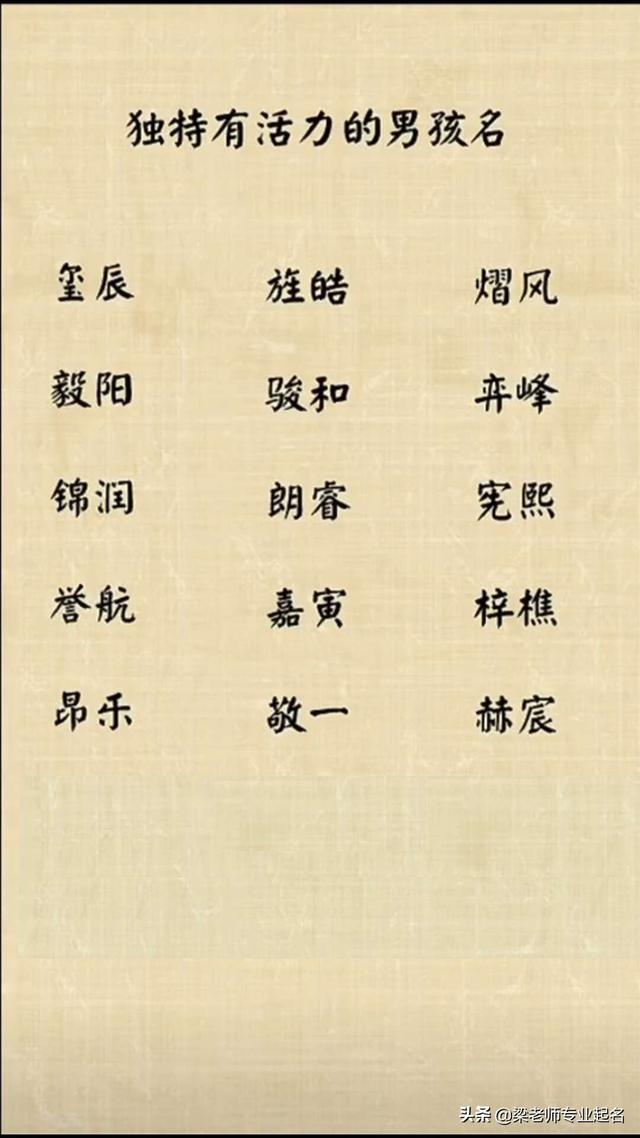 独特有活力的男孩名
玺辰 旌皓 熠风
毅阳 骏和 弈峰
锦润 朗睿 宪熙
誉航 嘉寅 梓樵
昂乐 敬一 赫宸
头条 @梁老师专业起名